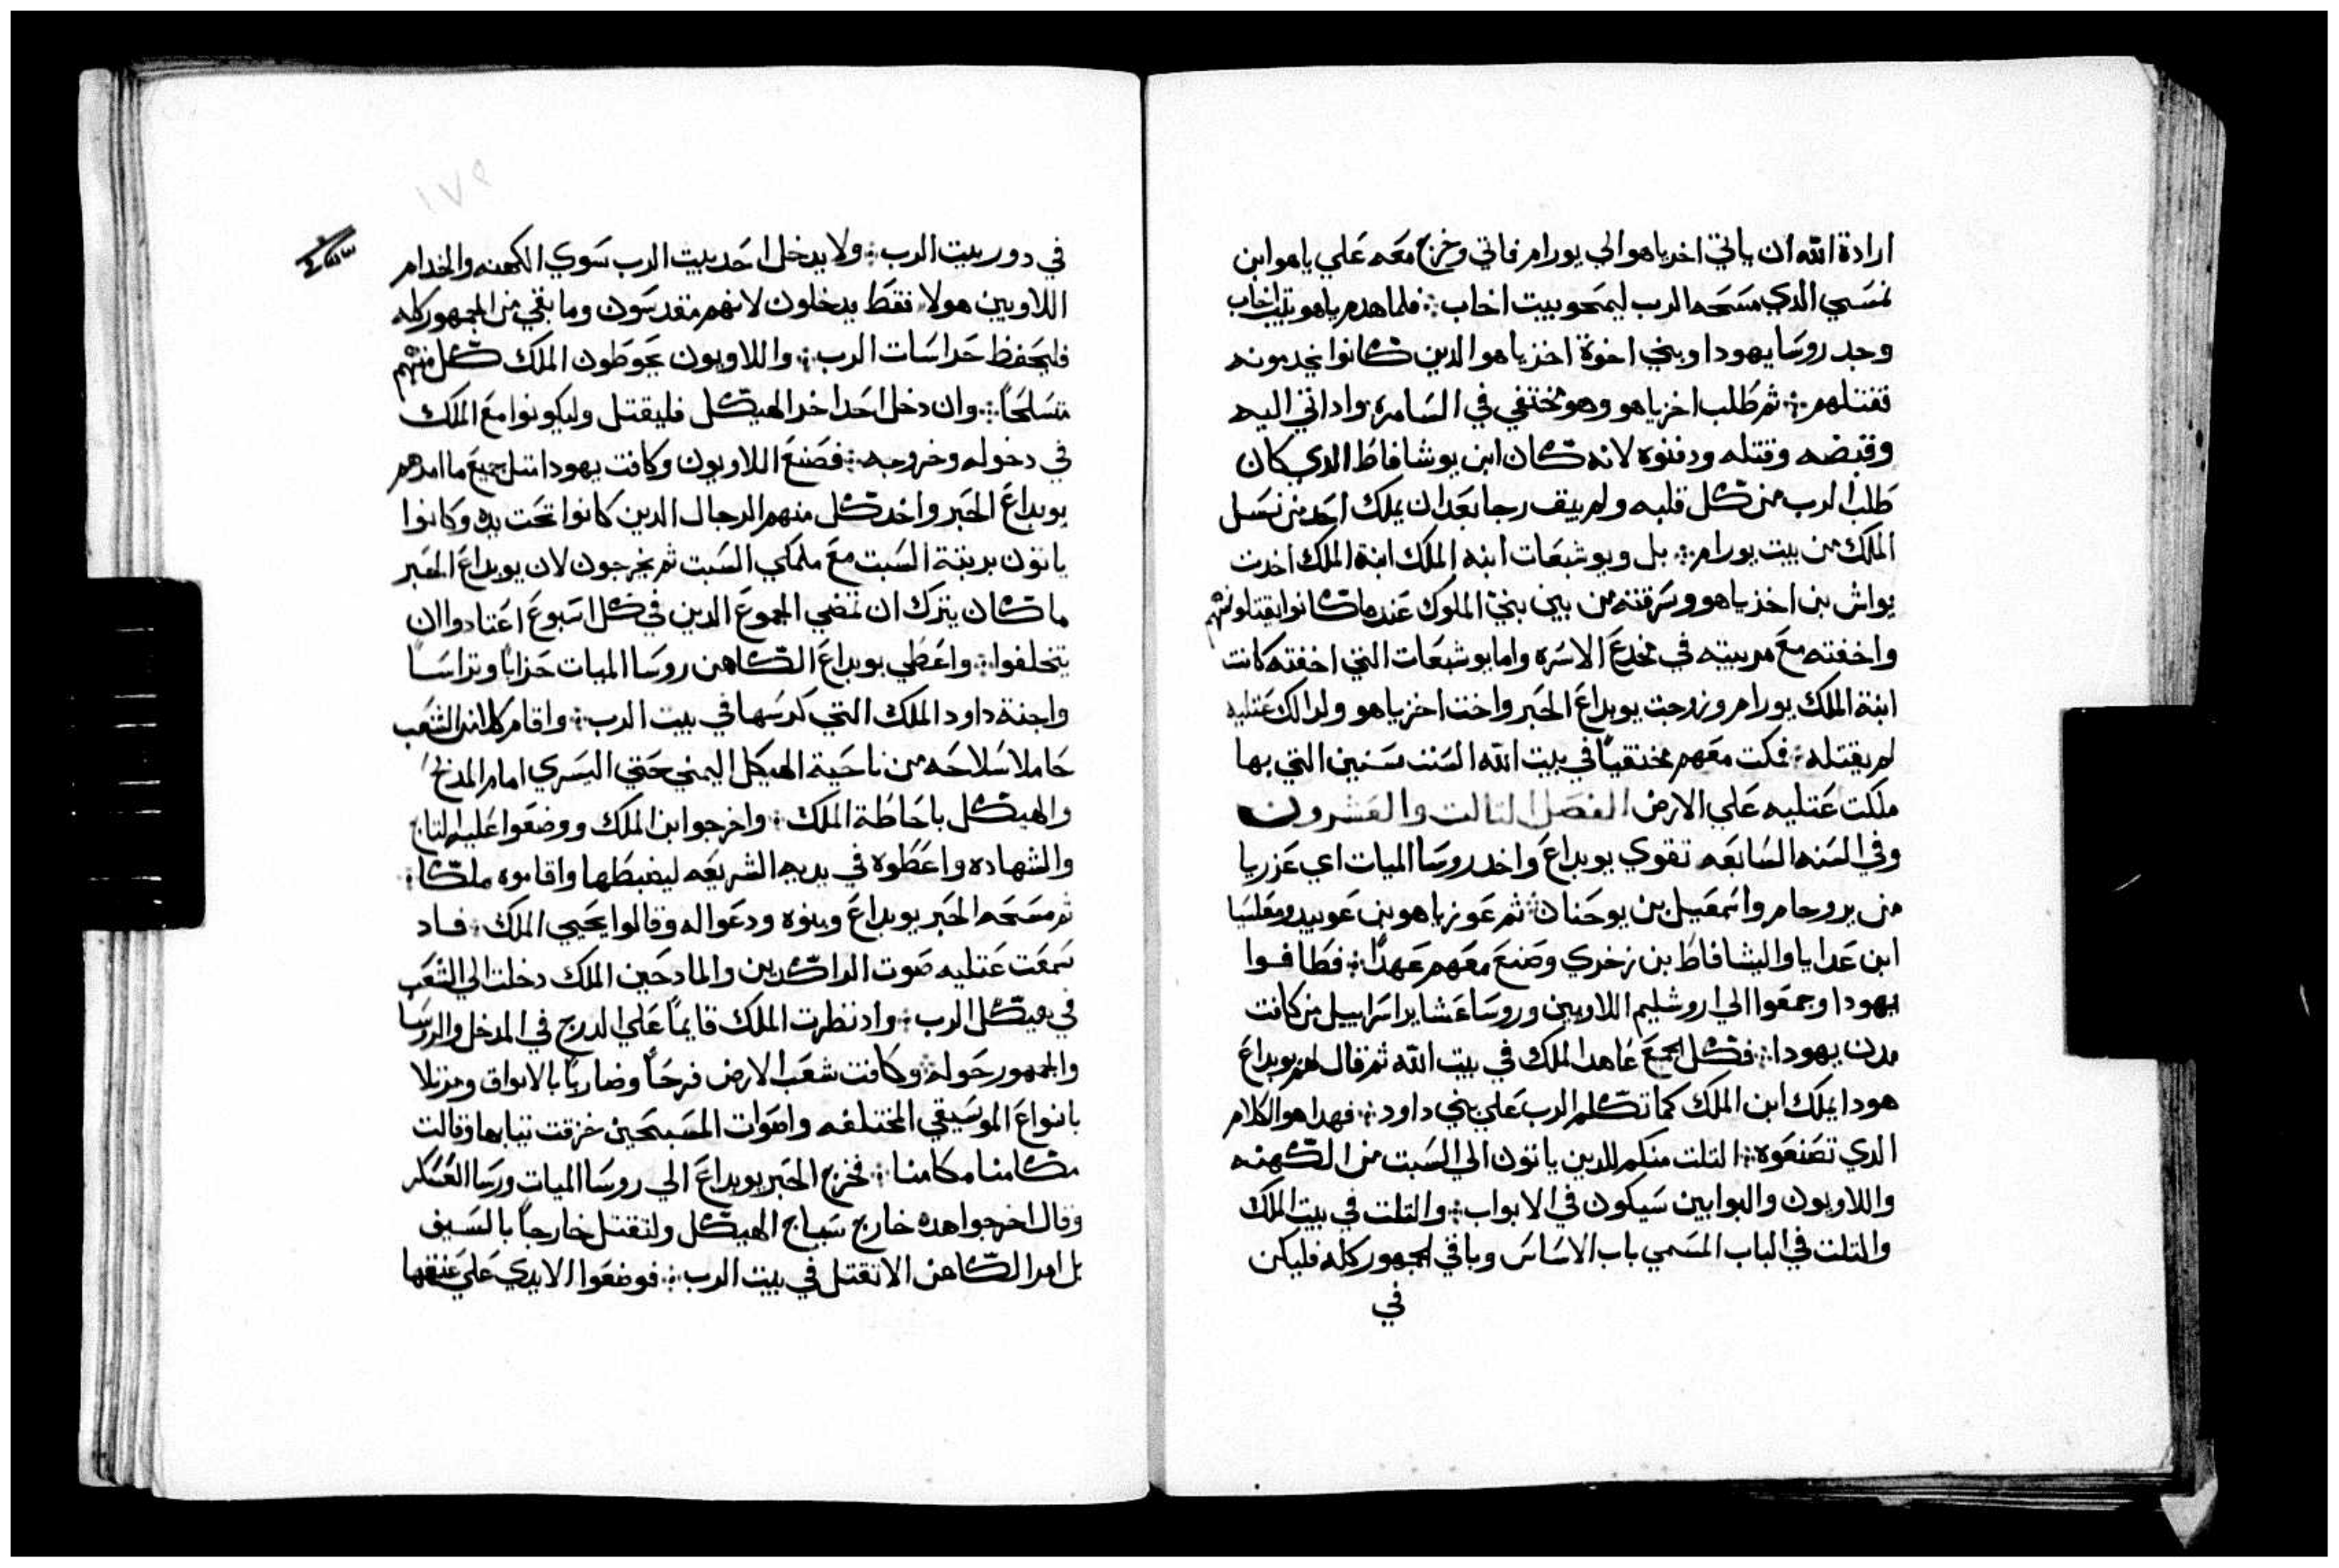 ارادة الله ان ياتي اخرياهو الي يورام فاتي وخرج معه علي ياهو ابن
نمسي الدي مسحه الرب ليمحو بيت اخاب ፧ فلما هدم ياهو بيت اخاب
وجد روسا يهودا وبني اخوة اخزياهو الدين كانوا يخدمونه
فقتلهم ፧ ثم طلب اخزياهو وهو مختفي في السامرة واداتي اليه
وقبضه وقتله ودفنوه لانه كان ابن يوشافاط الدي كان
طلب الرب من كل قلبه ولم يبق رجا بعد ان يملك احد من نسل
الملك من بيت يورام ፧ بل ويوشبعات ابنه الملك ابنة الملك اخدت
يواش بن اخذياهو وسرقته من بين بني الملوك عندما كانوا يقتلونهم
واخفته مع مربيته في مخدع الاسره واما يوشبعات التي اخفته كانت
ابنة الملك يورام وزوجت يويداع الحبر واخت اخزياهو ولدالك عتليه
لم يقتله ፧ فمكت معهم مختفيا في بيت الله الست سنين التي بها
ملكت عتليه علي الارض الفصل التالت والعشرون
وفي السنه السابعه تقوي يويداع واخد روسا الميات اي عزريا
من يروحام واسمعيل بن يوحنان ፧ ثم عوزياهو بن عوبيد ومعلسيا
ابن عدايا واليشافاط بن زخري وصنع معهم عهدا ፧ فطافوا
يهودا وجمعوا الي اروشليم اللاويين وروسا عشاير اسراييل من كانت
مدن يهودا ፧ فكل الجمع عاهدا الملك في بيت الله ثم قال لهم يويداع
هودا يملك ابن الملك كما تكلم الرب علي بني داود ፧ فهدا هو الكلام
الدي تصنعوه ፧ التلت منكم للدين ياتون الي السبت من الكهنه
واللاويون والبوابين سيكون في الابواب ፧ والتلت في بيت الملك
والتلت في الباب المسمي باب الاساس وباقي الجمهور كله فليكن
في
١٧٩
في دور بيت الرب ፧ ولا يدخل احد بيت الرب سوي الكهنه والخدام
اللاويين هولا فقط يدخلون لانهم مقدسون وما بقي من الجمهور كله
فليحفظ حراسات الرب ፧ واللاويون يحوطون الملك كل منهم
متسلحا ፧ وان دخل احد اخر الهيكل فليقتل وليكونوا مع الملك
في دخوله وخروجه ፧ فصنع اللاويون وكافت يهودا متل جميع ما امرهم
يويداع الحبر واخد كل منهم الرجال الدين كانوا تحت يده وكانوا
ياتون برتبة السبت مع مكملي السبت ثم يخرجون لان يويداع الحبر
ما كان يترك ان تمضي الجموع الدين في كل اسبوع اعتادوا ان
يتخلفوا ፧ واعطي يويداع الكاهن روسا الميات حرابا وتراسا
واجنة داود الملك التي كرسها في بيت الرب ፧ واقام كل الشعب
حاملا سلاحه من ناحية الهيكل اليمني حتي اليسري امام المدبح
والهيكل باحاطة الملك ፧ واخرجوا ابن الملك ووضعوا عليه التاج
والشهاده واعطوه في يديه الشريعه ليضبطها واقاموه ملكا ፧
ثم مسحه الحبر يويداع وبنوه ودعوا له وقالوا يحيي الملك ፧ فاد
سمعت عتليه صوت الراكدين والمادحين الملك دخلت الي الشعب
في هيكل الرب ፧ واد نظرت الملك قايما علي الدرج في المدخل والروسا
والجمهور حوله ፧ وكافت شعب الارض فرحا وضاربا بالابواق ومرتلا
بانواع الموسيقي المختلفه واصوات المسبحين خزقت تيابها وقالت
مكامنا مكامنا ፧ فخرج الحبر يويداع الي روسا الميات ورسا العسكر
وقال اخرجوا هده خارج سياج الهيكل ولتقتل خارجا بالسيف
بل امر الكاهن الا تقتل في بيت الرب ፧ فوضعوا الايدي علي عنقها